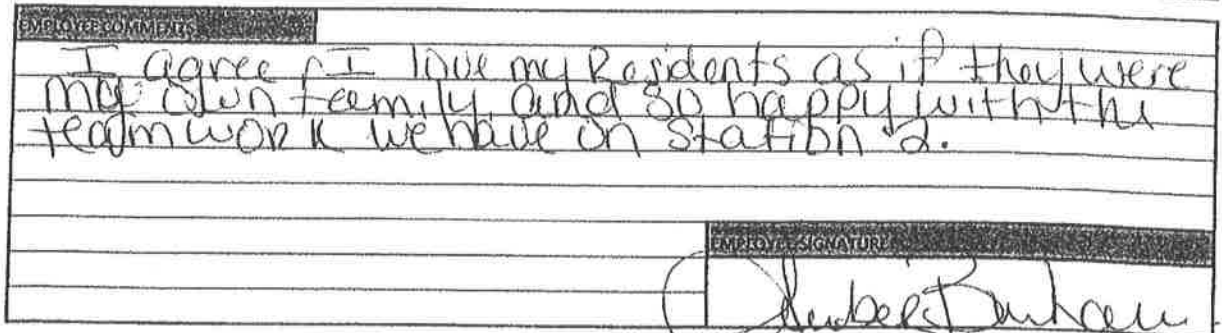 EMPLOYEE COMMENTS
I agree, I love my Residents as if they were
my own family. and so happy with the
teamwork we have on Station 2.
EMPLOYEE SIGNATURE